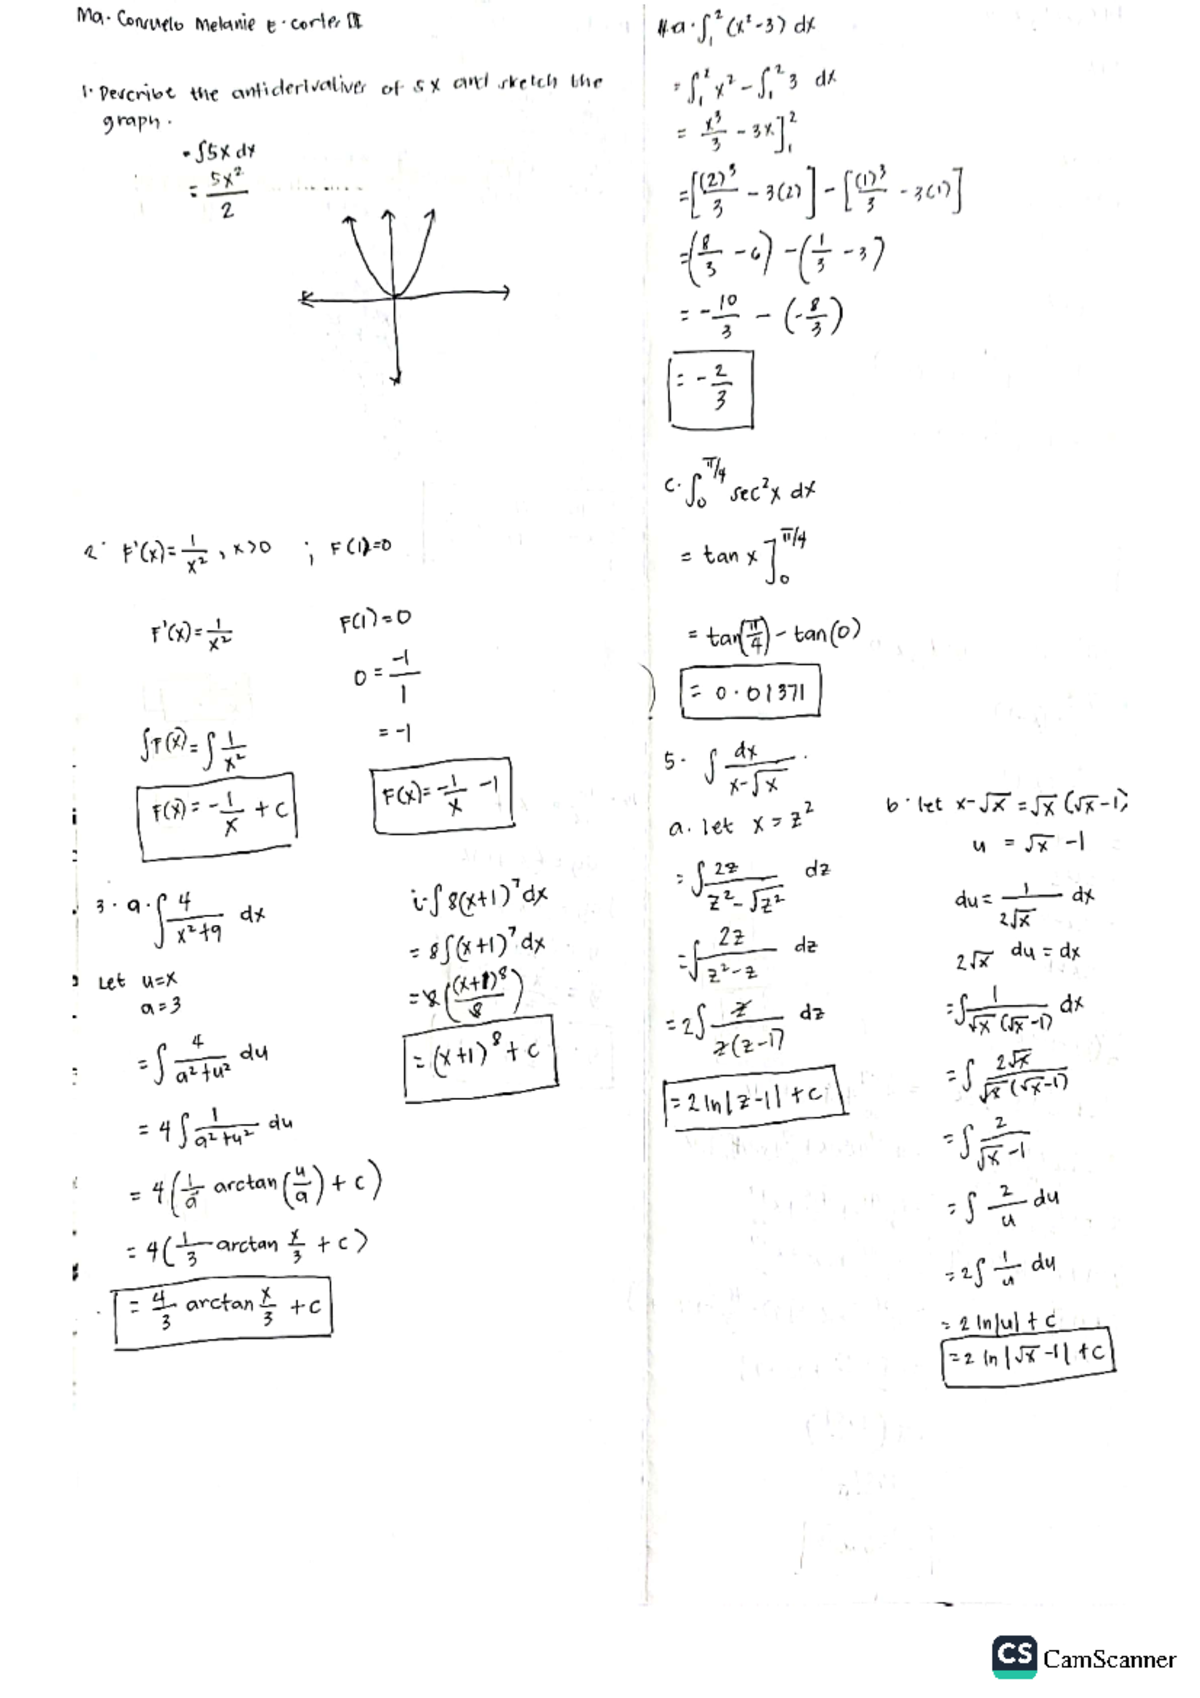 Ma. Consuelo Melanie E. Cortes III
1. Describe the antiderivatives of 5x and sketch the
graph.
= ∫5x dx
= 5x²/2
2. F'(x) = 1/x², x>0 ; F(1)=0
F'(x) = 1/x²
∫F(x) = ∫ 1/x²
F(x) = -1/x + C
F(1) = 0
0 = -1/1
= -1
F(x) = -1/x -1
3. a. ∫ 4/(x²+9) dx
Let u=x
a=3
= ∫ 4/(a²+u²) du
= 4∫ 1/(a²+u²) du
= 4(1/a arctan(u/a) + C)
= 4(1/3 arctan x/3 + C)
= 4/3 arctan x/3 + C
i. ∫8(x+1)⁷dx
= 8∫(x+1)⁷dx
= 8((x+1)⁸/8)
= (x+1)⁸ + C
4. a. ∫₁² (x²-3) dx
= ∫₁² x² - ∫₁² 3 dx
= x³/3 - 3x]₁²
= [(2)³/3 - 3(2)] - [(1)³/3 - 3(1)]
= (8/3 - 6) - (1/3 - 3)
= -10/3 - (-8/3)
= -2/3
c. ∫₀^π/4 sec²x dx
= tan x]₀^π/4
= tan(π/4) - tan(0)
= 0.01371
5. ∫ dx/(x-√x)
a. let x = z²
= ∫ 2z/(z²-√z²) dz
= ∫ 2z/(z²-z) dz
= 2∫ z/(z(z-1)) dz
= 2 ln|z-1| + C
b. let x-√x = √x (√x-1)
u = √x -1
du = 1/(2√x) dx
2√x du = dx
= ∫ 1/(√x (√x-1)) dx
= ∫ 2√x/(√x (√x-1))
= ∫ 2/(√x-1)
= ∫ 2/u du
= 2∫ 1/u du
= 2 ln|u| + C
= 2 ln|√x -1| + C
CS CamScanner